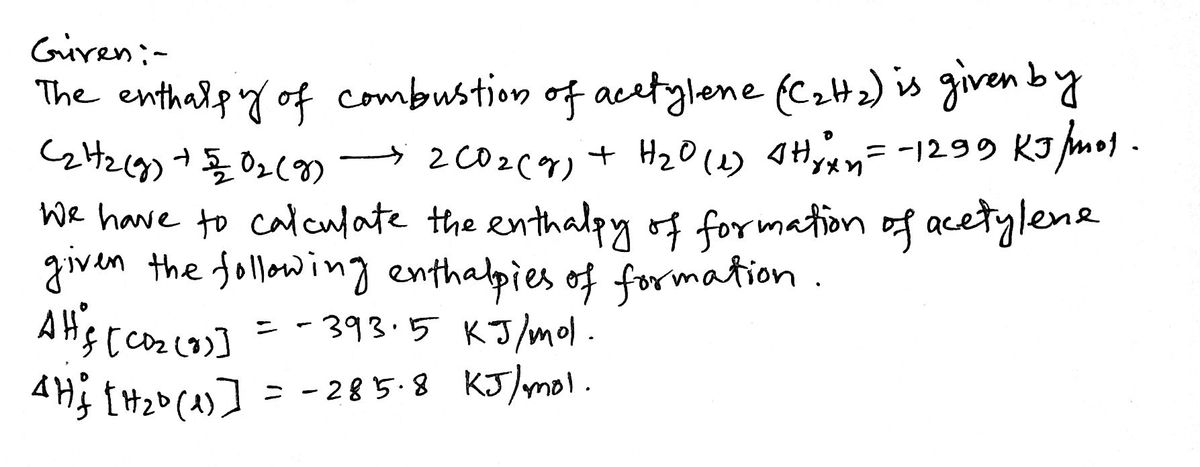 Given:-
The enthalpy of combustion of acetylene (C₂H₂) is given by
C₂H₂(g) + 5/2 O₂(g) ⟶ 2CO₂(g) + H₂O(l) ΔH°rxn = -1299 KJ/mol.
We have to calculate the enthalpy of formation of acetylene
given the following enthalpies of formation.
ΔH°f [CO₂(g)] = -393.5 KJ/mol.
ΔH°f [H₂O(l)] = -285.8 KJ/mol.